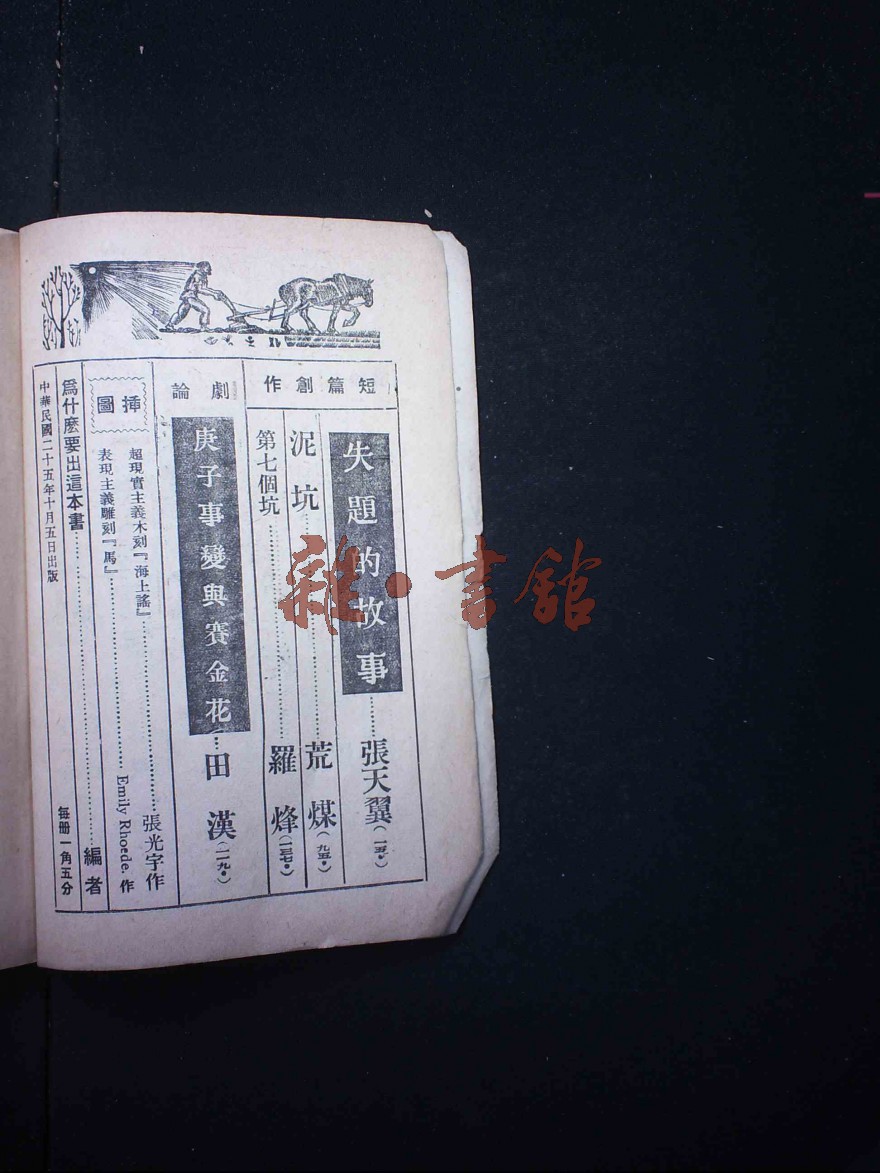 短篇創作
失題的故事……張天翼(一五•)
泥坑……荒煤(九五•)
第七個坑……羅烽(一三七•)
劇論
庚子事變與賽金花……田漢(一一九•)
插圖
超現實主義木刻『海上謠』……張光宇作
表現主義雕刻『馬』……Emily Rhoede. 作
爲什麽要出這本書……編者
中華民國二十五年十月五日出版
每册一角五分
雜·書館